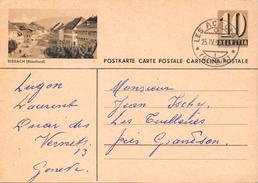 10
HELVETIA
LES AC
25.IV
SISSACH (Baselland)
POSTKARTE CARTE POSTALE CARTOLINA POSTALE
Lugon
Laurent
Quai des
Vernets
13
Genève
Monsieur
Jean
Les Tuilleries
près Grandson